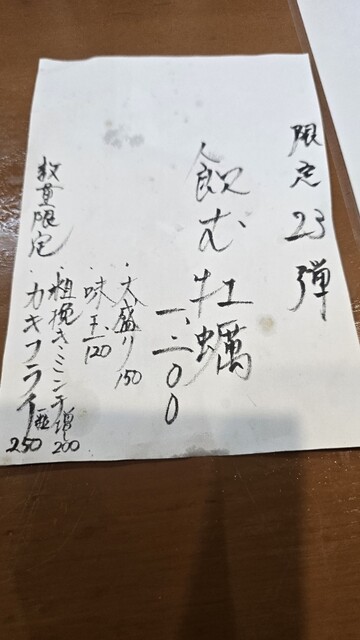 限定23弾
飲む牡蠣
一、二〇〇
・大盛り150
・味玉120
数量限定
・粗挽きミンチ増200
・カキフライ一粒250